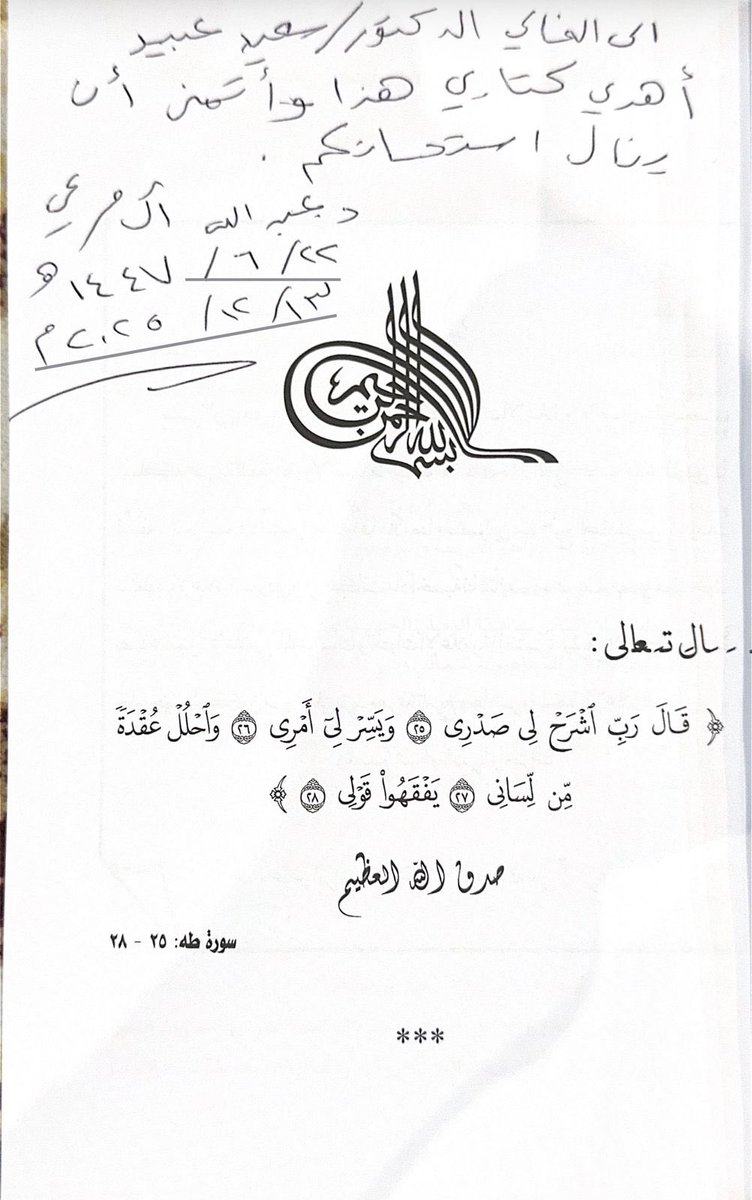 الى الغالي الدكتور/ سعيد عبيد
أهدي كتابي هذا وأتمنى أن
ينال استحسانكم .
د عبد الله آل مرعي
٢٢/ ٦ / ١٤٤٧ هـ
١٣/ ١٢/ ٢٠٢٥ م
بسم الله الرحمن الرحيم
ـال تعالى:
﴿ قَالَ رَبِّ ٱشْرَحْ لِى صَدْرِى ٢٥ وَيَسِّرْ لِىٓ أَمْرِى ٢٦ وَٱحْلُلْ عُقْدَةً
مِّن لِّسَانِى ٢٧ يَفْقَهُوا۟ قَوْلِى ٢٨ ﴾
صدق الله العظيم
سورة طه: ٢٥ - ٢٨
***